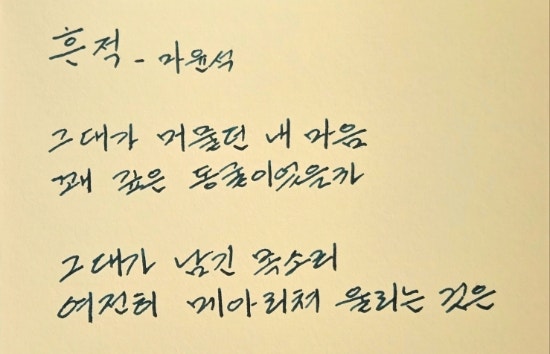 흔적 - 마윤석
그대가 머물던 내 마음
꽤 깊은 동굴이었을까
그대가 남긴 목소리
여전히 메아리쳐 울리는 것은